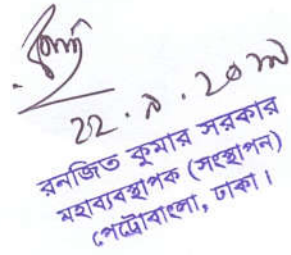 ২২.৯.২০১৯
রনজিত কুমার সরকার
মহাব্যবস্থাপক (সংস্থাপন)
পেট্রোবাংলা, ঢাকা।